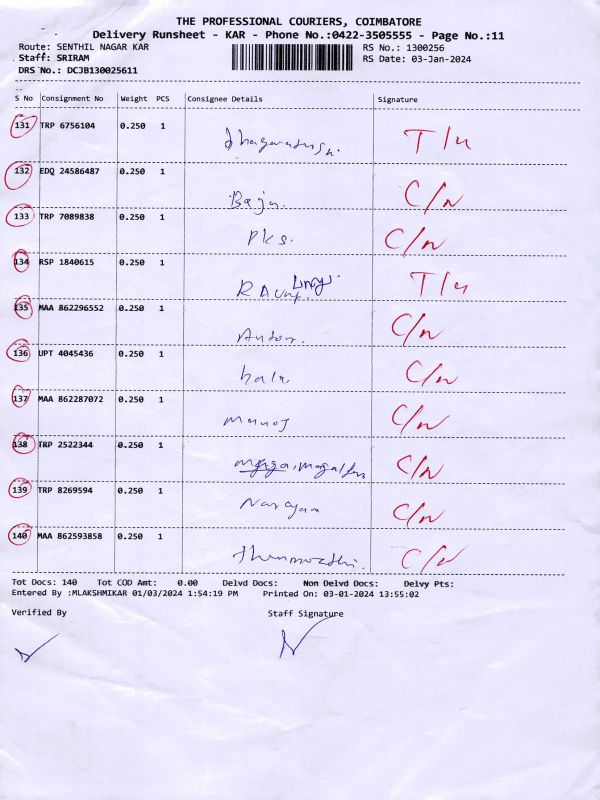 THE PROFESSIONAL COURIERS, COIMBATORE
Delivery Runsheet - KAR - Phone No.:0422-3505555 - Page No.:11
Route: SENTHIL NAGAR KAR RS No.: 1300256
Staff: SRIRAM RS Date: 03-Jan-2024
DRS No.: DCJB130025611
S No Consignment No Weight PCS Consignee Details Signature
131 TRP 6756104 0.250 1 T/4
132 EDQ 24586487 0.250 1 Baju. C/N
133 TRP 7089838 0.250 1 Pks. C/N
134 RSP 1840615 0.250 1 T/4
135 MAA 862296552 0.250 1 C/N
136 UPT 4045436 0.250 1 C/N
137 MAA 862287072 0.250 1 Manoj C/N
138 TRP 2522344 0.250 1 C/N
139 TRP 8269594 0.250 1 Narayan C/N
140 MAA 862593858 0.250 1 C/N
Tot Docs: 140 Tot COD Amt: 0.00 Delvd Docs: Non Delvd Docs: Delvy Pts:
Entered By :MLAKSHMIKAR 01/03/2024 1:54:19 PM Printed On: 03-01-2024 13:55:02
Verified By Staff Signature